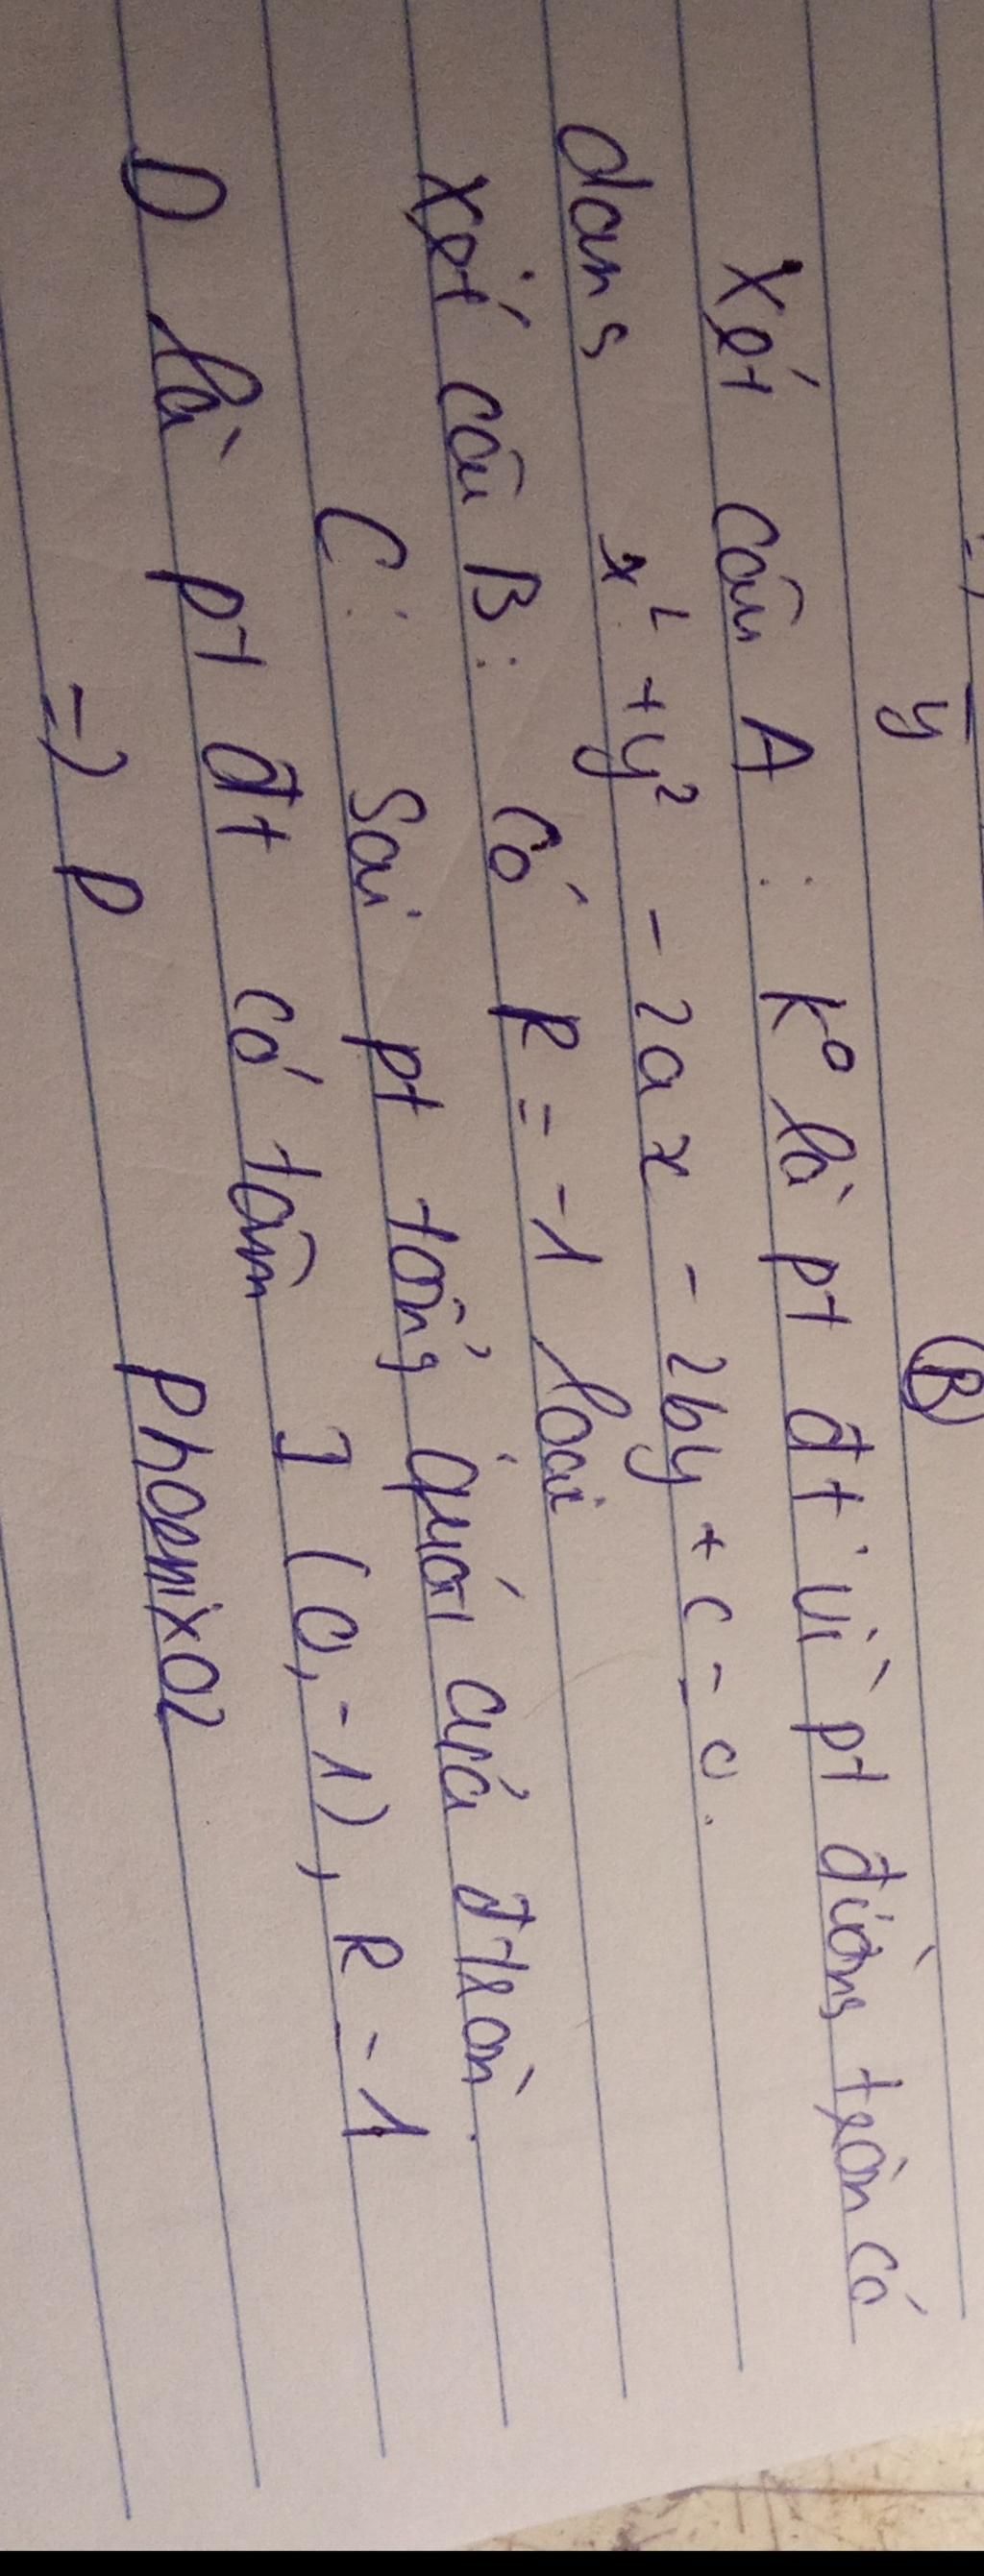 y
B
Xét câu A : k° là pt đt vì pt đường tròn có
dạng x² + y² - 2ax - 2by + c = 0.
Xét câu B : có R = -1 loại
C : Sai pt tổng quát của đtròn.
D là pt đt có tâm I (0, -1), R = 1
=> D Phoenix02